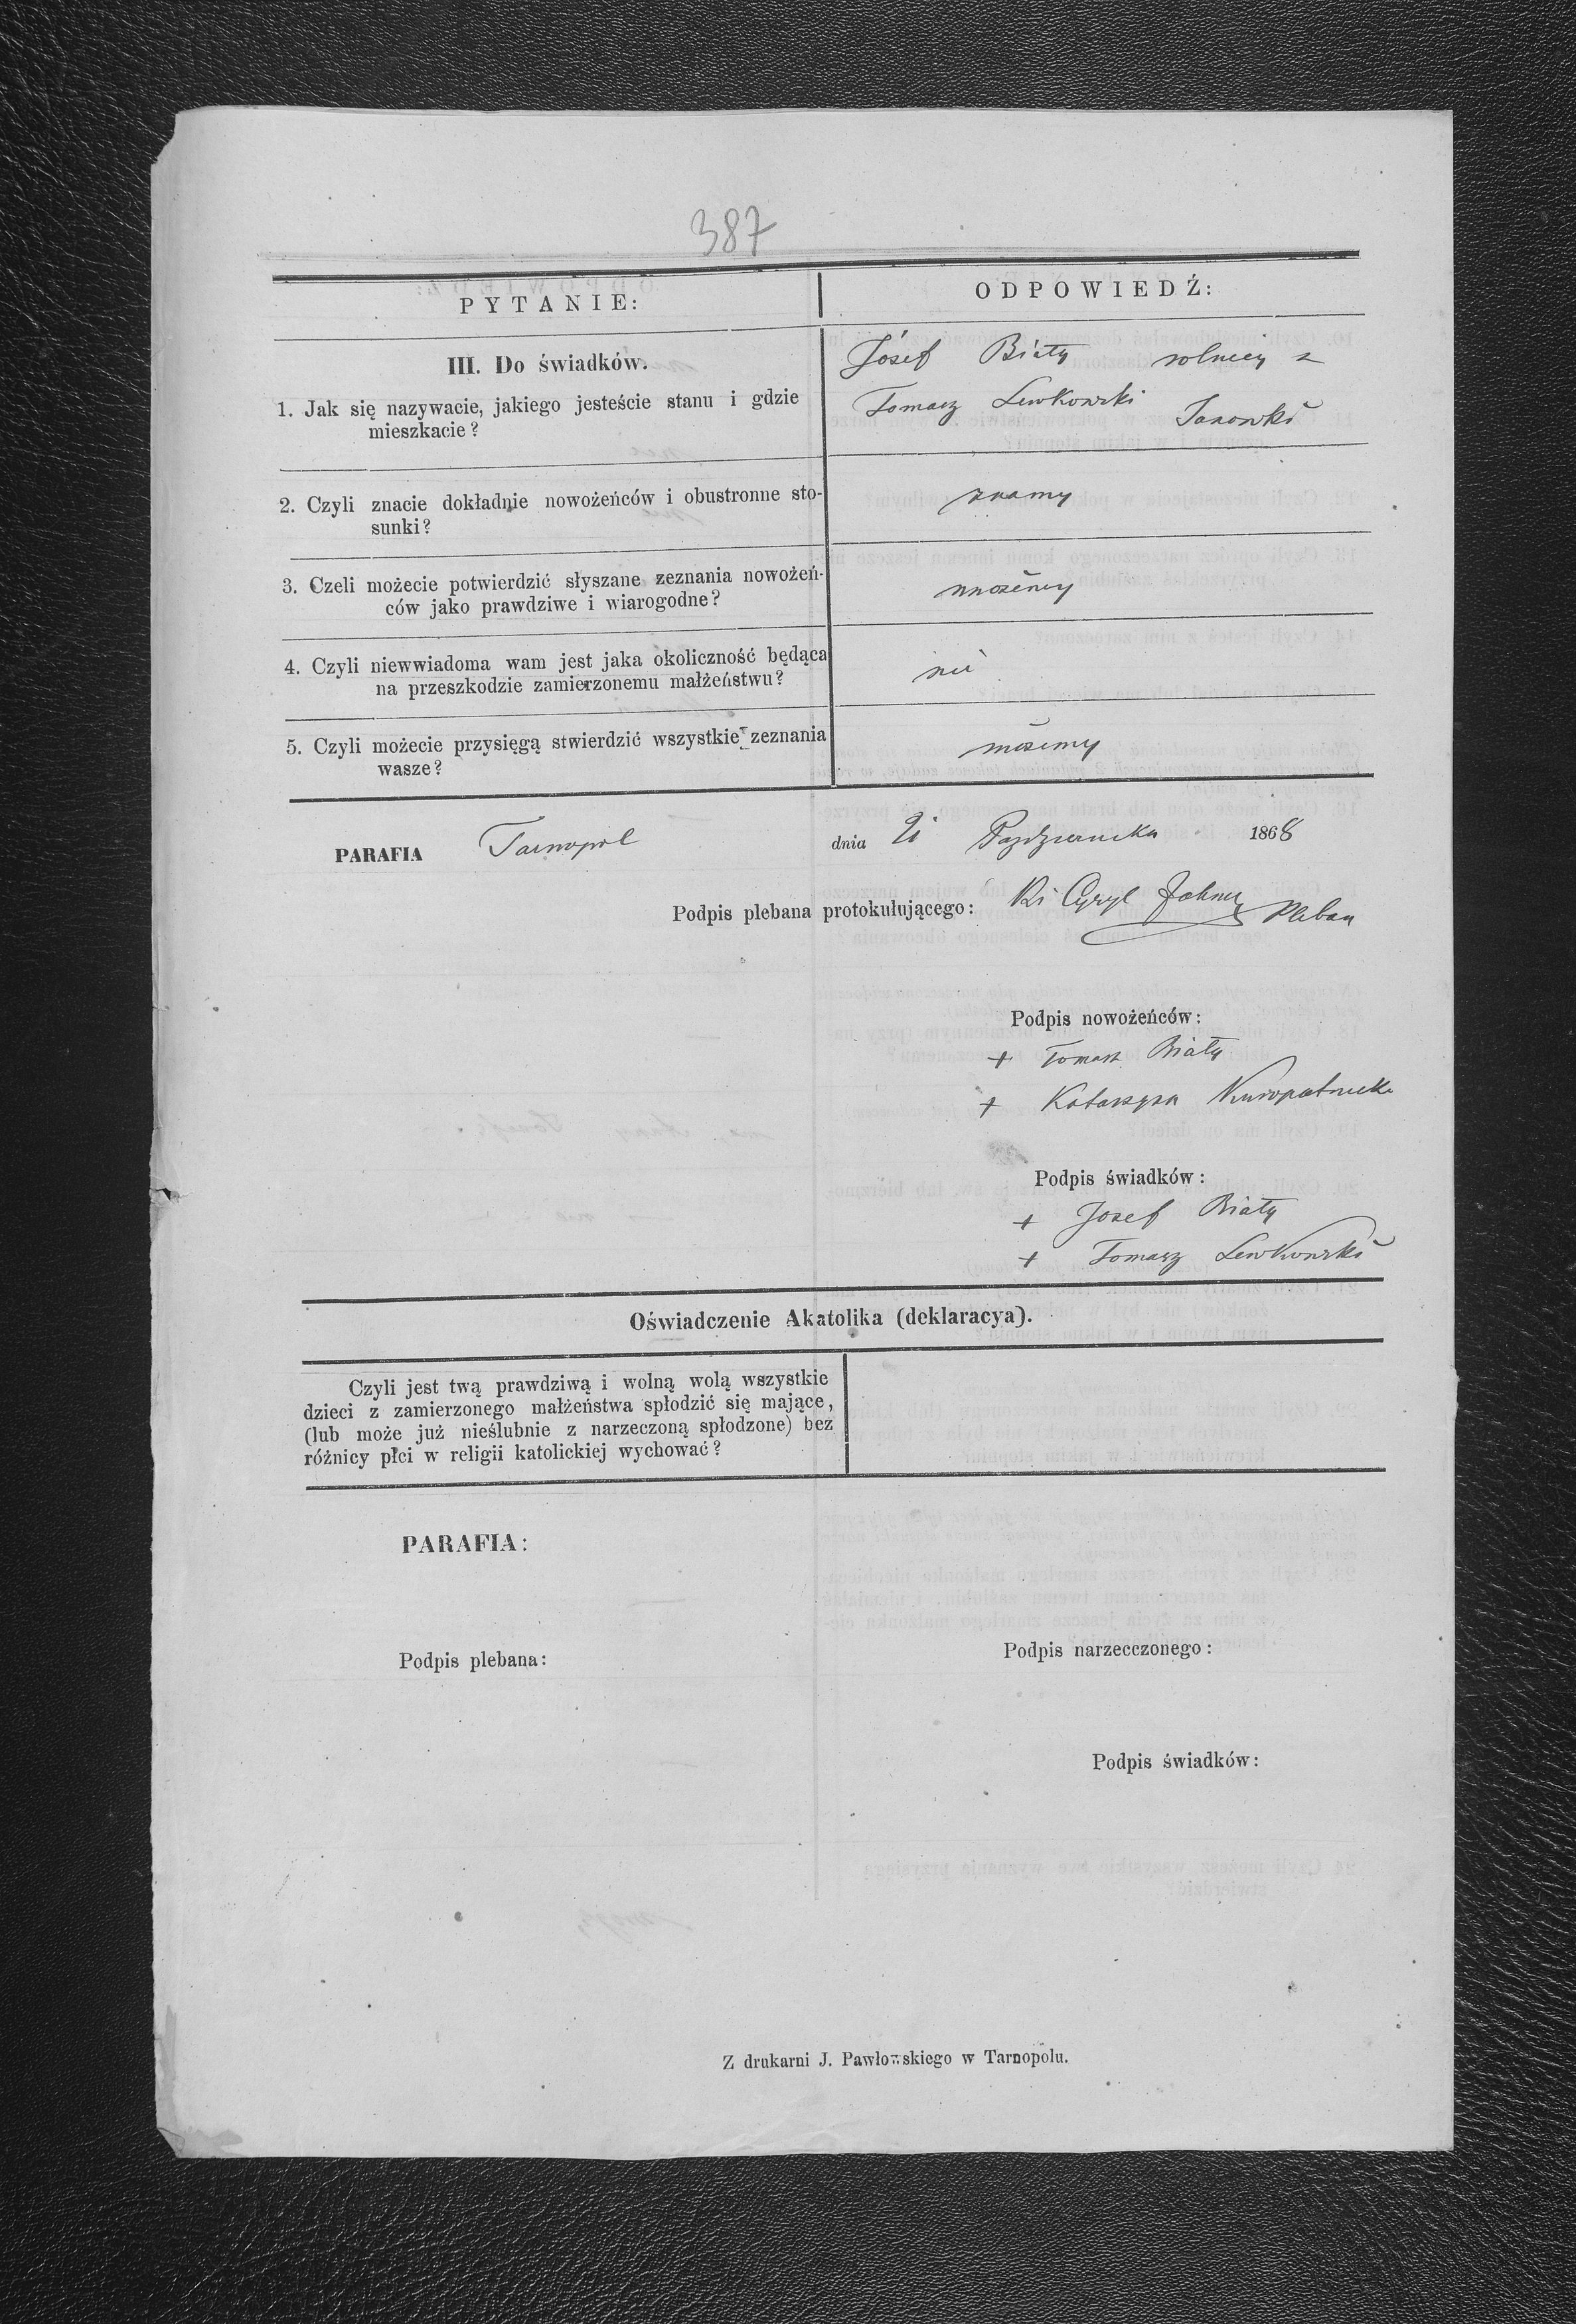 387
PYTANIE:
ODPOWIEDŹ:
III. Do świadków.
1. Jak się nazywacie, jakiego jesteście stanu i gdzie
mieszkacie?
Józef Biały rolnicy z
Tomasz Lewkowski Janowki
2. Czyli znacie dokładnie nowożeńców i obustronne sto-
sunki?
znamy
3. Czeli możecie potwierdzić słyszane zeznania nowożeń-
ców jako prawdziwe i wiarogodne?
możemy
4. Czyli niewwiadoma wam jest jaka okoliczność będąca
na przeszkodzie zamierzonemu małżeństwu?
nie
5. Czyli możecie przysięgą stwierdzić wszystkie zeznania
wasze?
możemy
PARAFIA Tarnopol dnia Października 1868
Podpis plebana protokułującego: Cyryl Pleban
Podpis nowożeńców:
+ Tomasz Biały
+ Katarzyna Kuropatnicka
Podpis świadków:
+ Josef Biały
+ Tomasz Lewkowski
Oświadczenie Akatolika (deklaracya).
Czyli jest twą prawdziwą i wolną wolą wszystkie
dzieci z zamierzonego małżeństwa spłodzić się mające,
(lub może już nieślubnie z narzeczoną spłodzone) bez
różnicy płci w religii katolickiej wychować?
PARAFIA:
Podpis plebana:
Podpis narzecczonego:
Podpis świadków:
Z drukarni J. Pawłowskiego w Tarnopolu.